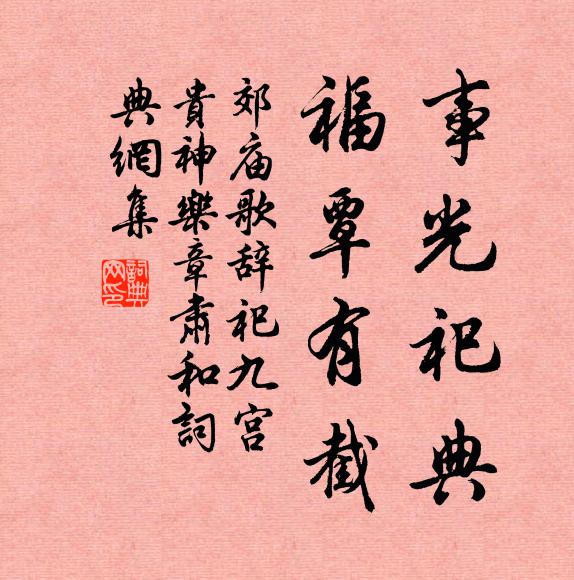 事光祀典
福覃有截
郊庙歌辞祀九宫
貴神樂章肅和詞
典網集
詞典
网印